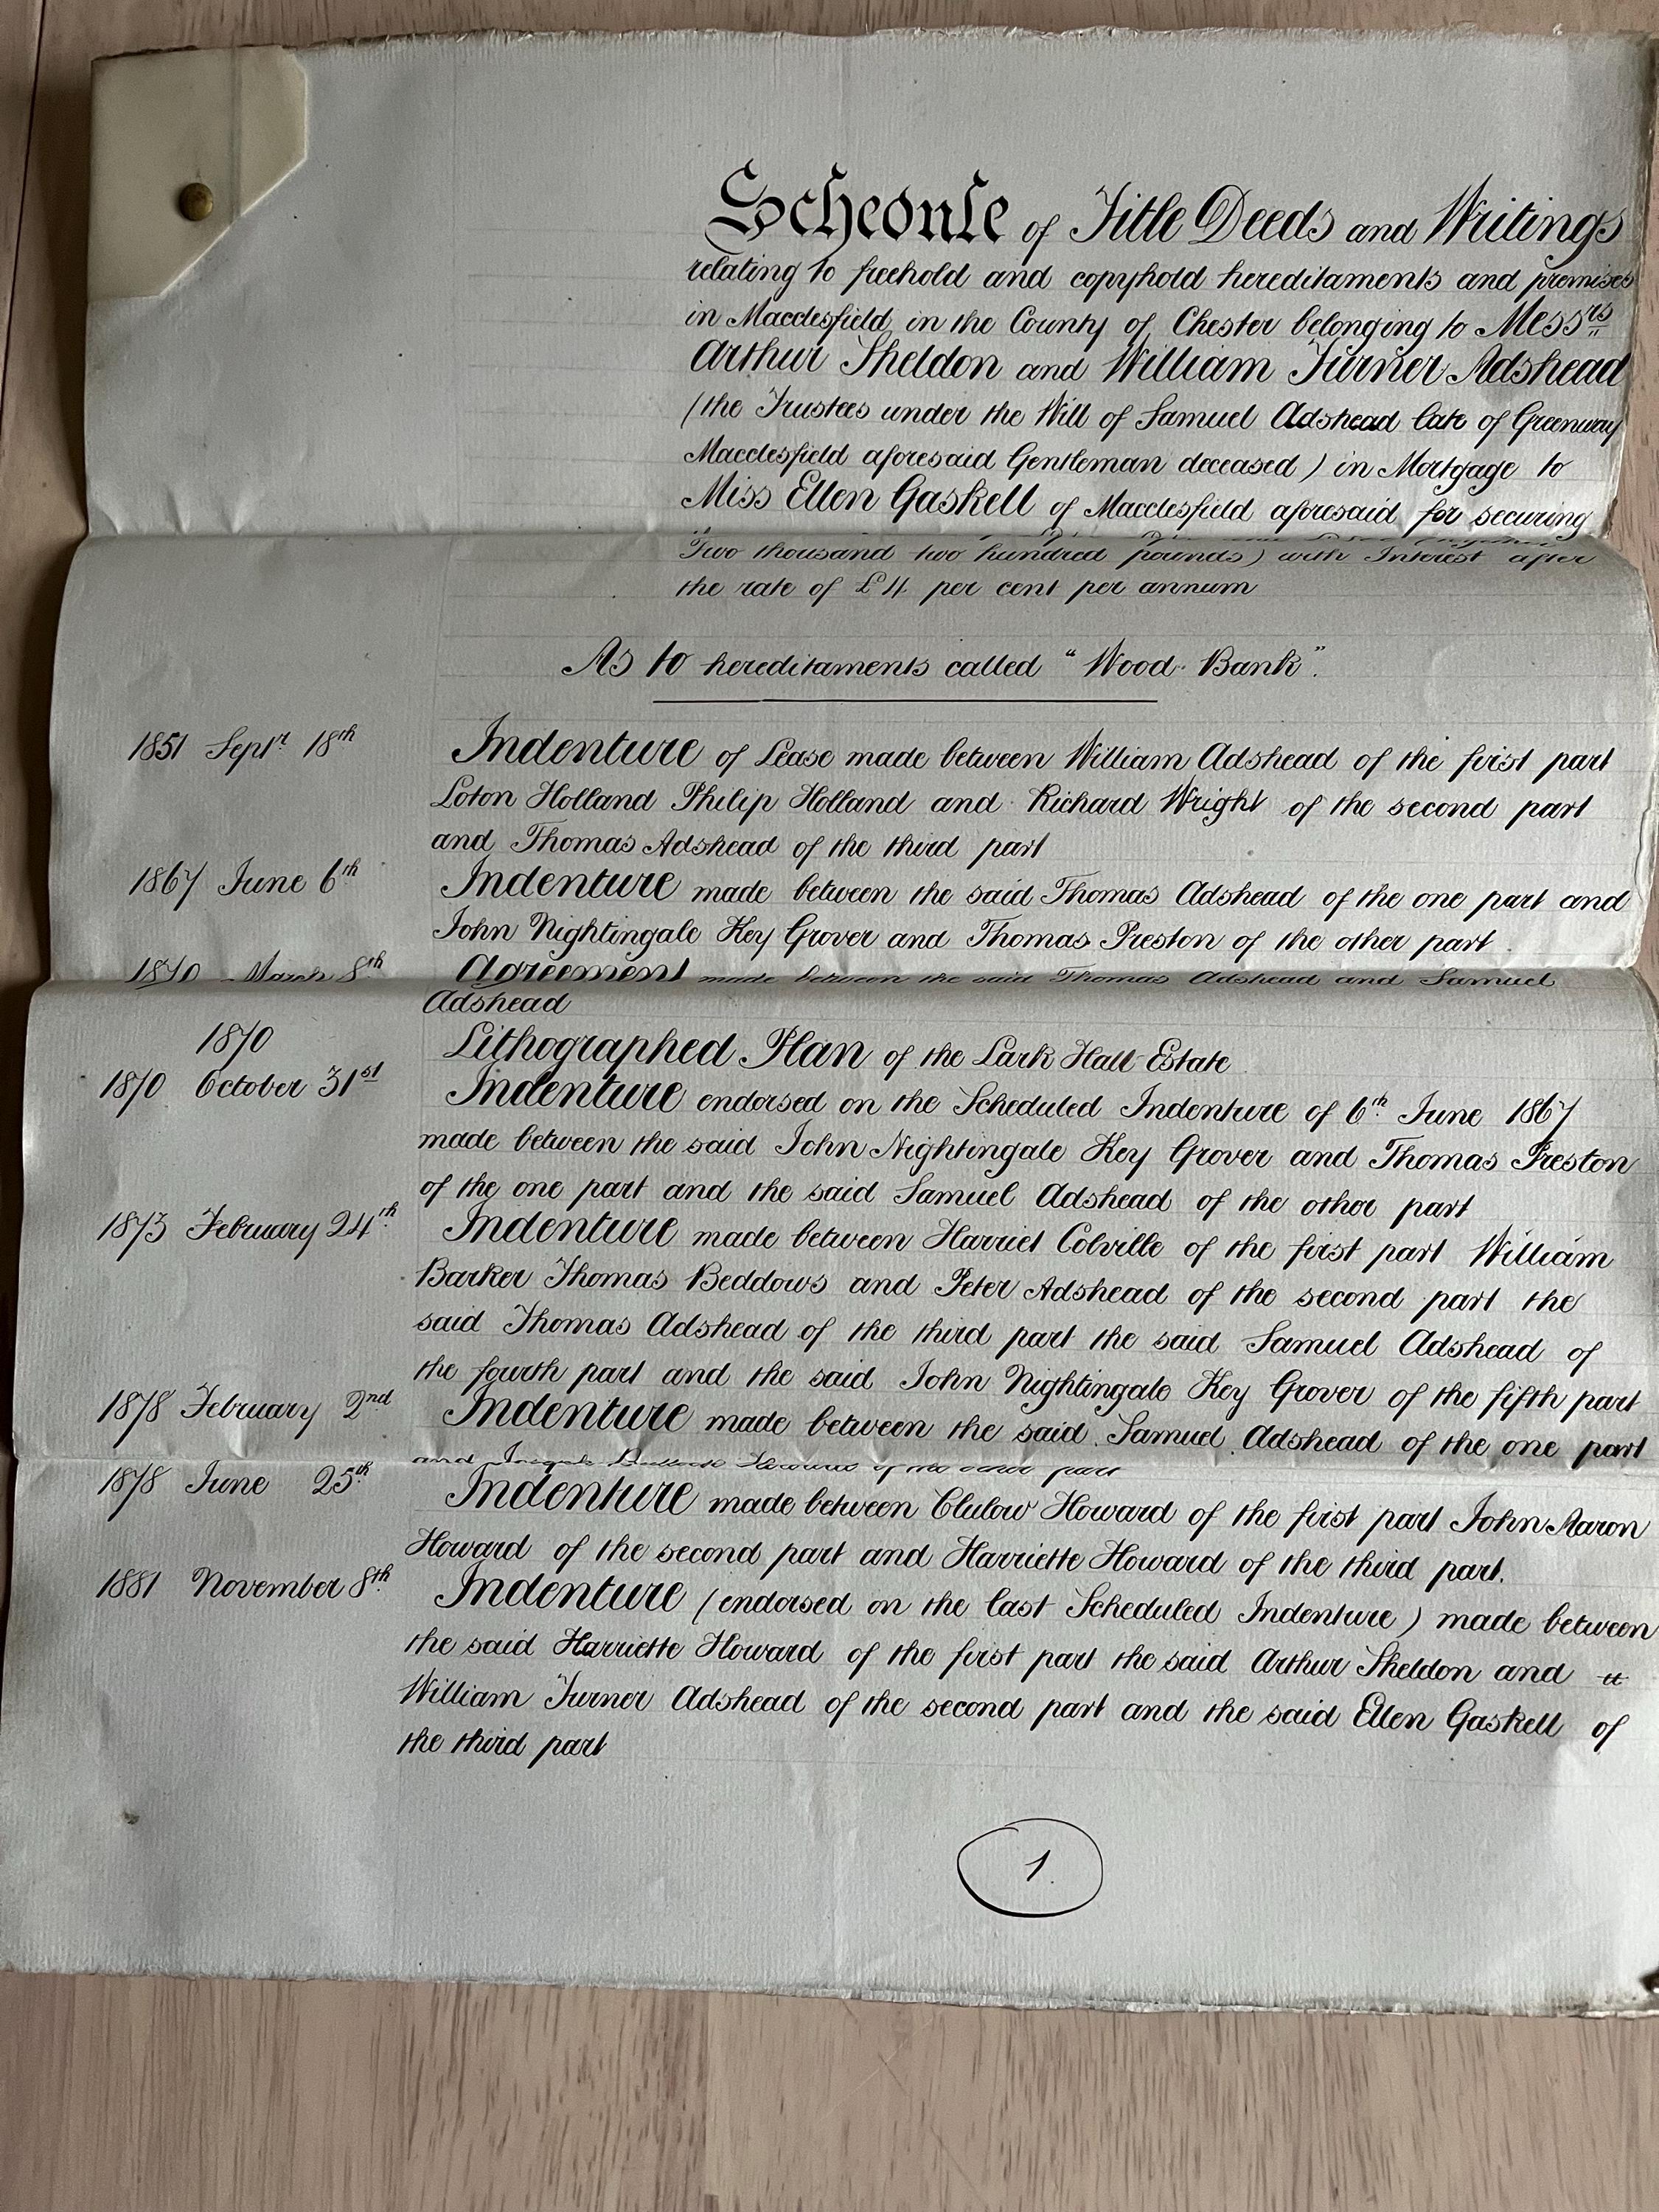 Schedule of Title Deeds and Writings
relating to freehold and copyhold hereditaments and premises
in Macclesfield in the County of Chester belonging to Messrs
Arthur Sheldon and William Turner Adshead
(the Trustees under the Will of Samuel Adshead late of Greenway
Macclesfield aforesaid Gentleman deceased) in Mortgage to
Miss Ellen Gaskell of Macclesfield aforesaid for securing
Two thousand two hundred pounds) with Interest after
the rate of £4 per cent per annum
As to hereditaments called "Wood Bank".
1851 Septr 18th Indenture of Lease made between William Adshead of the first part
Loton Holland Philip Holland and Richard Wright of the second part
and Thomas Adshead of the third part
1867 June 6th Indenture made between the said Thomas Adshead of the one part and
John Nightingale Key Grover and Thomas Preston of the other part
1870 March 8th Agreement made between the said Thomas Adshead and Samuel
Adshead
1870 Lithographed Plan of the Lark Hall Estate
1870 October 31st Indenture endorsed on the Scheduled Indenture of 6th June 1867
made between the said John Nightingale Key Grover and Thomas Preston
of the one part and the said Samuel Adshead of the other part
1873 February 24th Indenture made between Harriet Colville of the first part William
Barker Thomas Beddows and Peter Adshead of the second part the
said Thomas Adshead of the third part the said Samuel Adshead of
the fourth part and the said John Nightingale Key Grover of the fifth part
1878 February 2nd Indenture made between the said Samuel Adshead of the one part
and of the other part
1878 June 25th Indenture made between Clulow Howard of the first part John Aaron
Howard of the second part and Harriette Howard of the third part.
1881 November 8th Indenture (endorsed on the last Scheduled Indenture) made between
the said Harriette Howard of the first part the said Arthur Sheldon and
William Turner Adshead of the second part and the said Ellen Gaskell of
the third part
1.